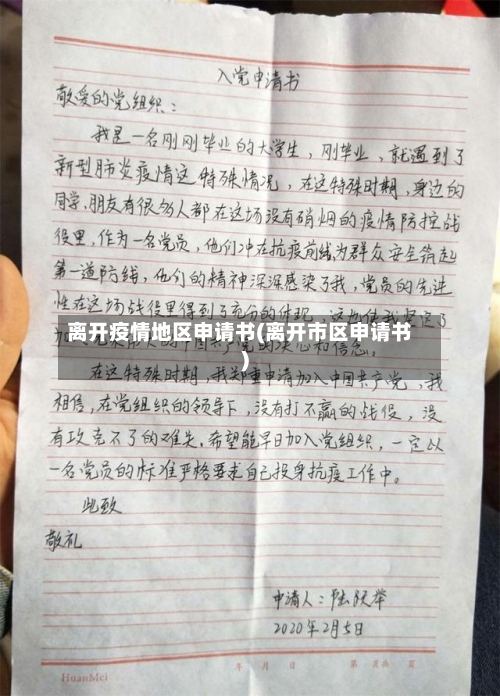 入党申请书
敬爱的党组织：
我是一名刚刚毕业的大学生，刚毕业，就遇到了
新型肺炎疫情这特殊情况，在这特殊时期，身边的
同学，朋友有很多人都在这场没有硝烟的疫情防控战
役里，作为一名党员，他们冲在抗疫前线，为群众安全筑起
第一道防线，他们的精神深深感染了我，党员的先进
性在这场战役里得到了充分的体现，这也使我坚定了
离开疫情地区申请书(离开市区申请书
)
在这特殊时期，我郑重申请加入中国共产党，我
相信，在党组织的领导下，没有打不赢的战役，没
有攻克不了的难关，希望能早日加入党组织，一定以
一名党员的标准严格要求自己投身抗疫工作中。
此致
敬礼
申请人：
2020年2月5日
HuanMei
年 月 日
第 页共 页